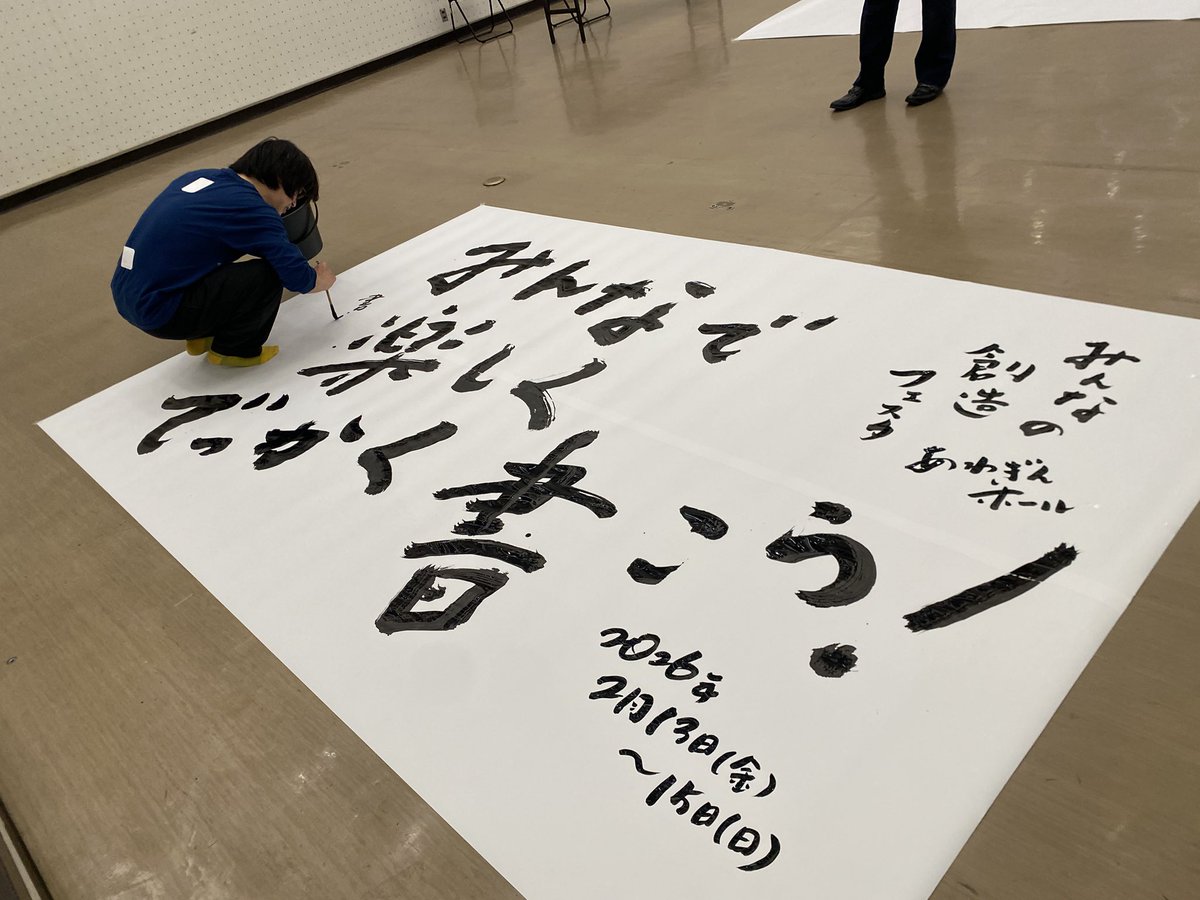 みんなの
創造
フェスタ
あわぎん
ホール
みんなで
楽しく
でっかく
書こう!
2026年
2月13日(金)
~15日(日)